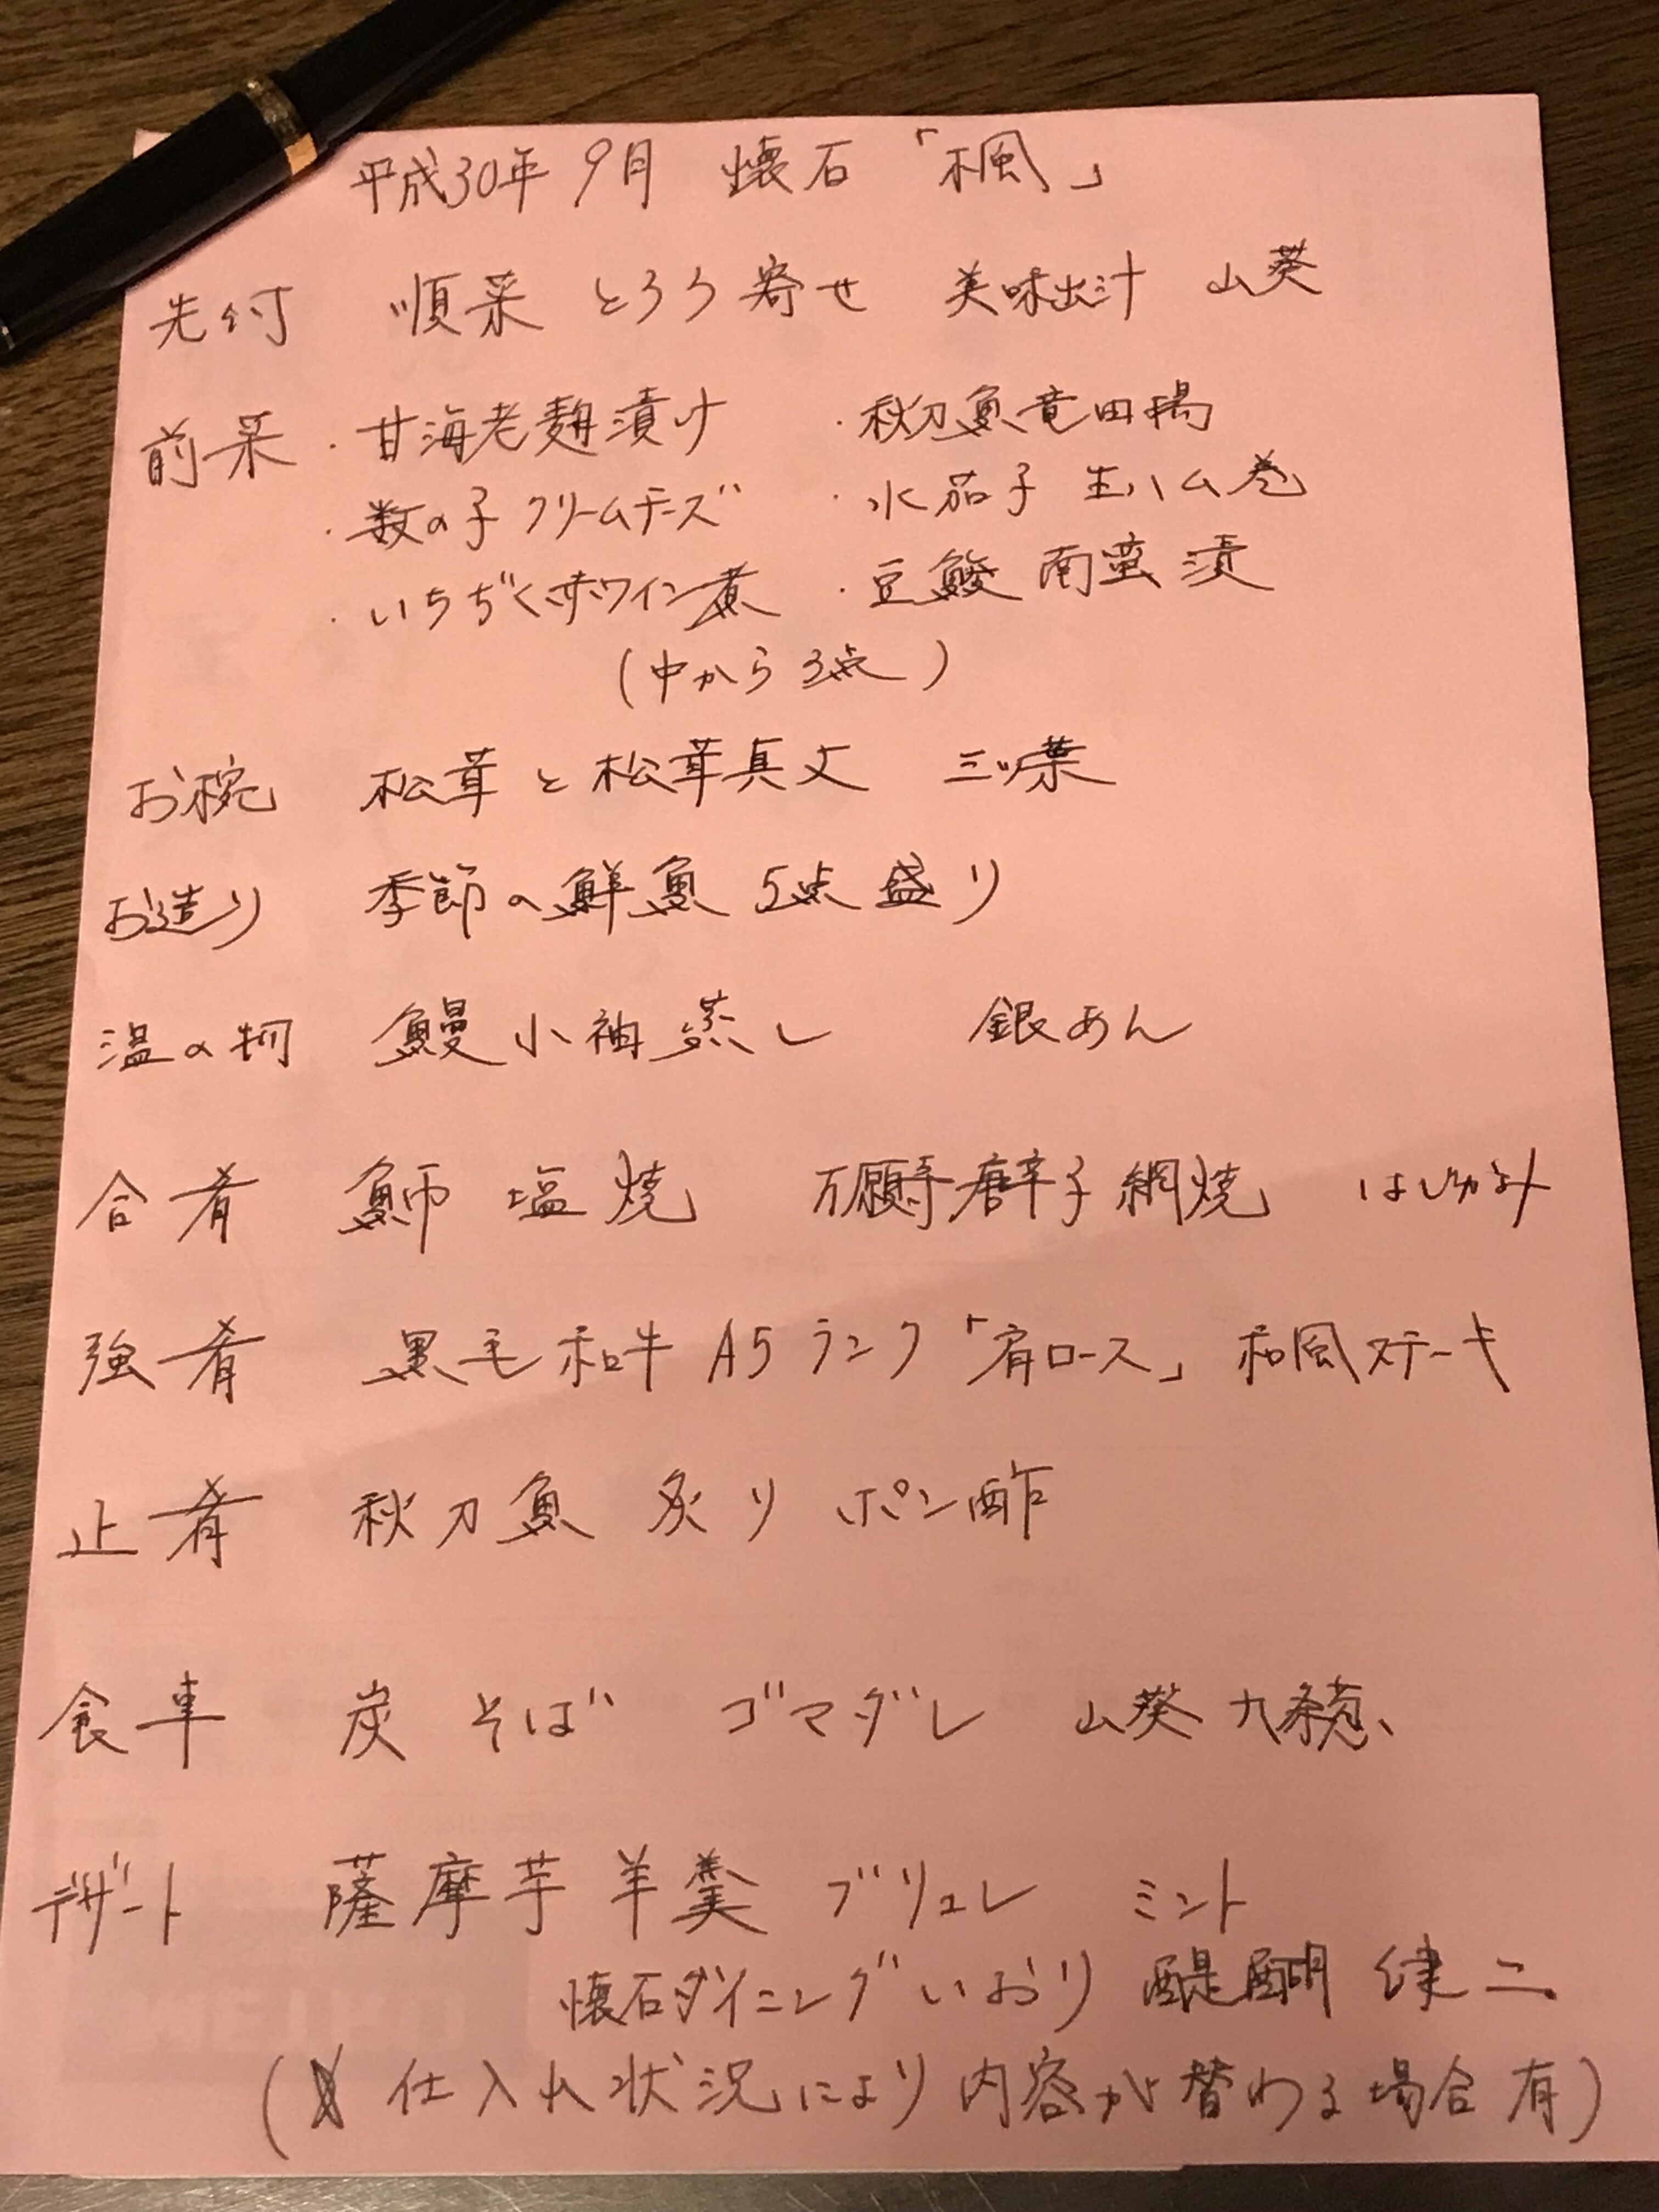 平成30年 9月 懐石「楓」
先付 順菜 とろろ寄せ 美味出汁 山葵
前菜 ・甘海老麹漬け ・秋刀魚竜田揚
・数の子クリームチーズ ・水茄子 生ハム巻
・いちぢく赤ワイン煮 ・豆鯵 南蛮漬
(中から3点)
お椀 松茸と松茸真丈 三ツ葉
お造り 季節の鮮魚 5点盛り
温の物 鰻小袖蒸し 銀あん
合肴 鰤 塩焼 万願寺唐辛子網焼 はじかみ
強肴 黒毛和牛 A5ランク「肩ロース」和風ステーキ
止肴 秋刀魚 炙り ポン酢
食事 炭そば ゴマダレ 山葵 九条葱
デザート 薩摩芋羊羹 ブリュレ ミント
懐石ダイニングいおり 醍醐 健二
(仕入れ状況により内容が替わる場合有)